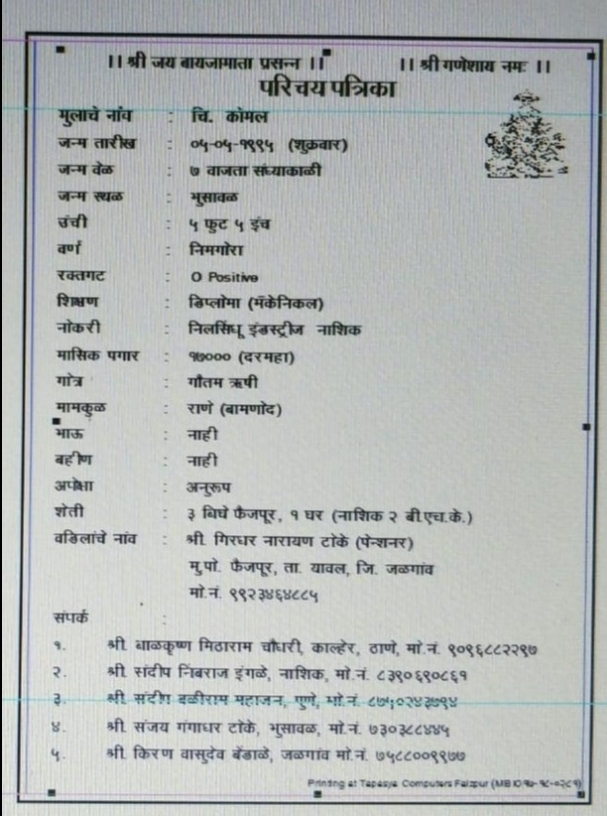 ।। श्री जय बायजामाता प्रसन्न ।। ।। श्री गणेशाय नमः ।।
परिचय पत्रिका
मुलाचे नांव : चि. कोमल
जन्म तारीख : ०५-०५-१९९५ (शुक्रवार)
जन्म वेळ : ७ वाजता संध्याकाळी
जन्म स्थळ : भुसावळ
उंची : ५ फुट ५ इंच
वर्ण : निमगोरा
रक्तगट : O Positive
शिक्षण : डिप्लोमा (मॅकेनिकल)
नोकरी : निलसिंधू इंडस्ट्रीज नाशिक
मासिक पगार : १७००० (दरमहा)
गोत्र : गौतम ऋषी
मामकुळ : राणे (बामणोद)
भाऊ : नाही
बहीण : नाही
अपेक्षा : अनुरूप
शेती : ३ बिघे फैजपूर, १ घर (नाशिक २ बी.एच.के.)
वडिलांचे नांव : श्री. गिरधर नारायण टोके (पेन्शनर)
मु.पो. फैजपूर, ता. यावल, जि. जळगांव
मो.नं. ९९२३४६४८८५
संपर्क :
१. श्री. बाळकृष्ण मिठाराम चौधरी, काल्हेर, ठाणे, मो.नं. ९०९६८८२२९७
२. श्री. संदीप निंबराज इंगळे, नाशिक, मो.नं. ८३९०६९०८६१
३. श्री. संदीप बळीराम महाजन, पुणे, मो.नं.
४. श्री. संजय गंगाधर टोके, भुसावळ, मो.नं. ७३०३८८४४५
५. श्री. किरण वासुदेव बेंडाळे, जळगांव मो.नं. ७५८८००९९७७
Printing at Tapasya Computers Faizpur